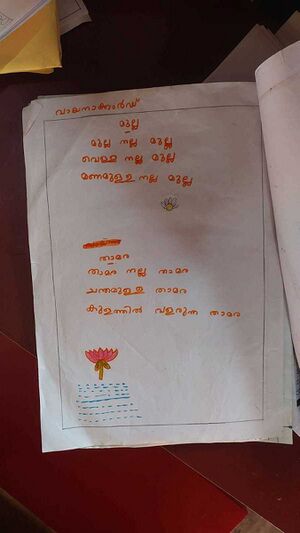 വായനാക്കാർഡ്
മുല്ല
മുല്ല നല്ല മുല്ല
വെള്ള നല്ല മുല്ല
മണമുള്ള നല്ല മുല്ല
താമര
താമര നല്ല താമര
ചന്തമുള്ള താമര
കുളത്തിൽ വളരുന്ന താമര